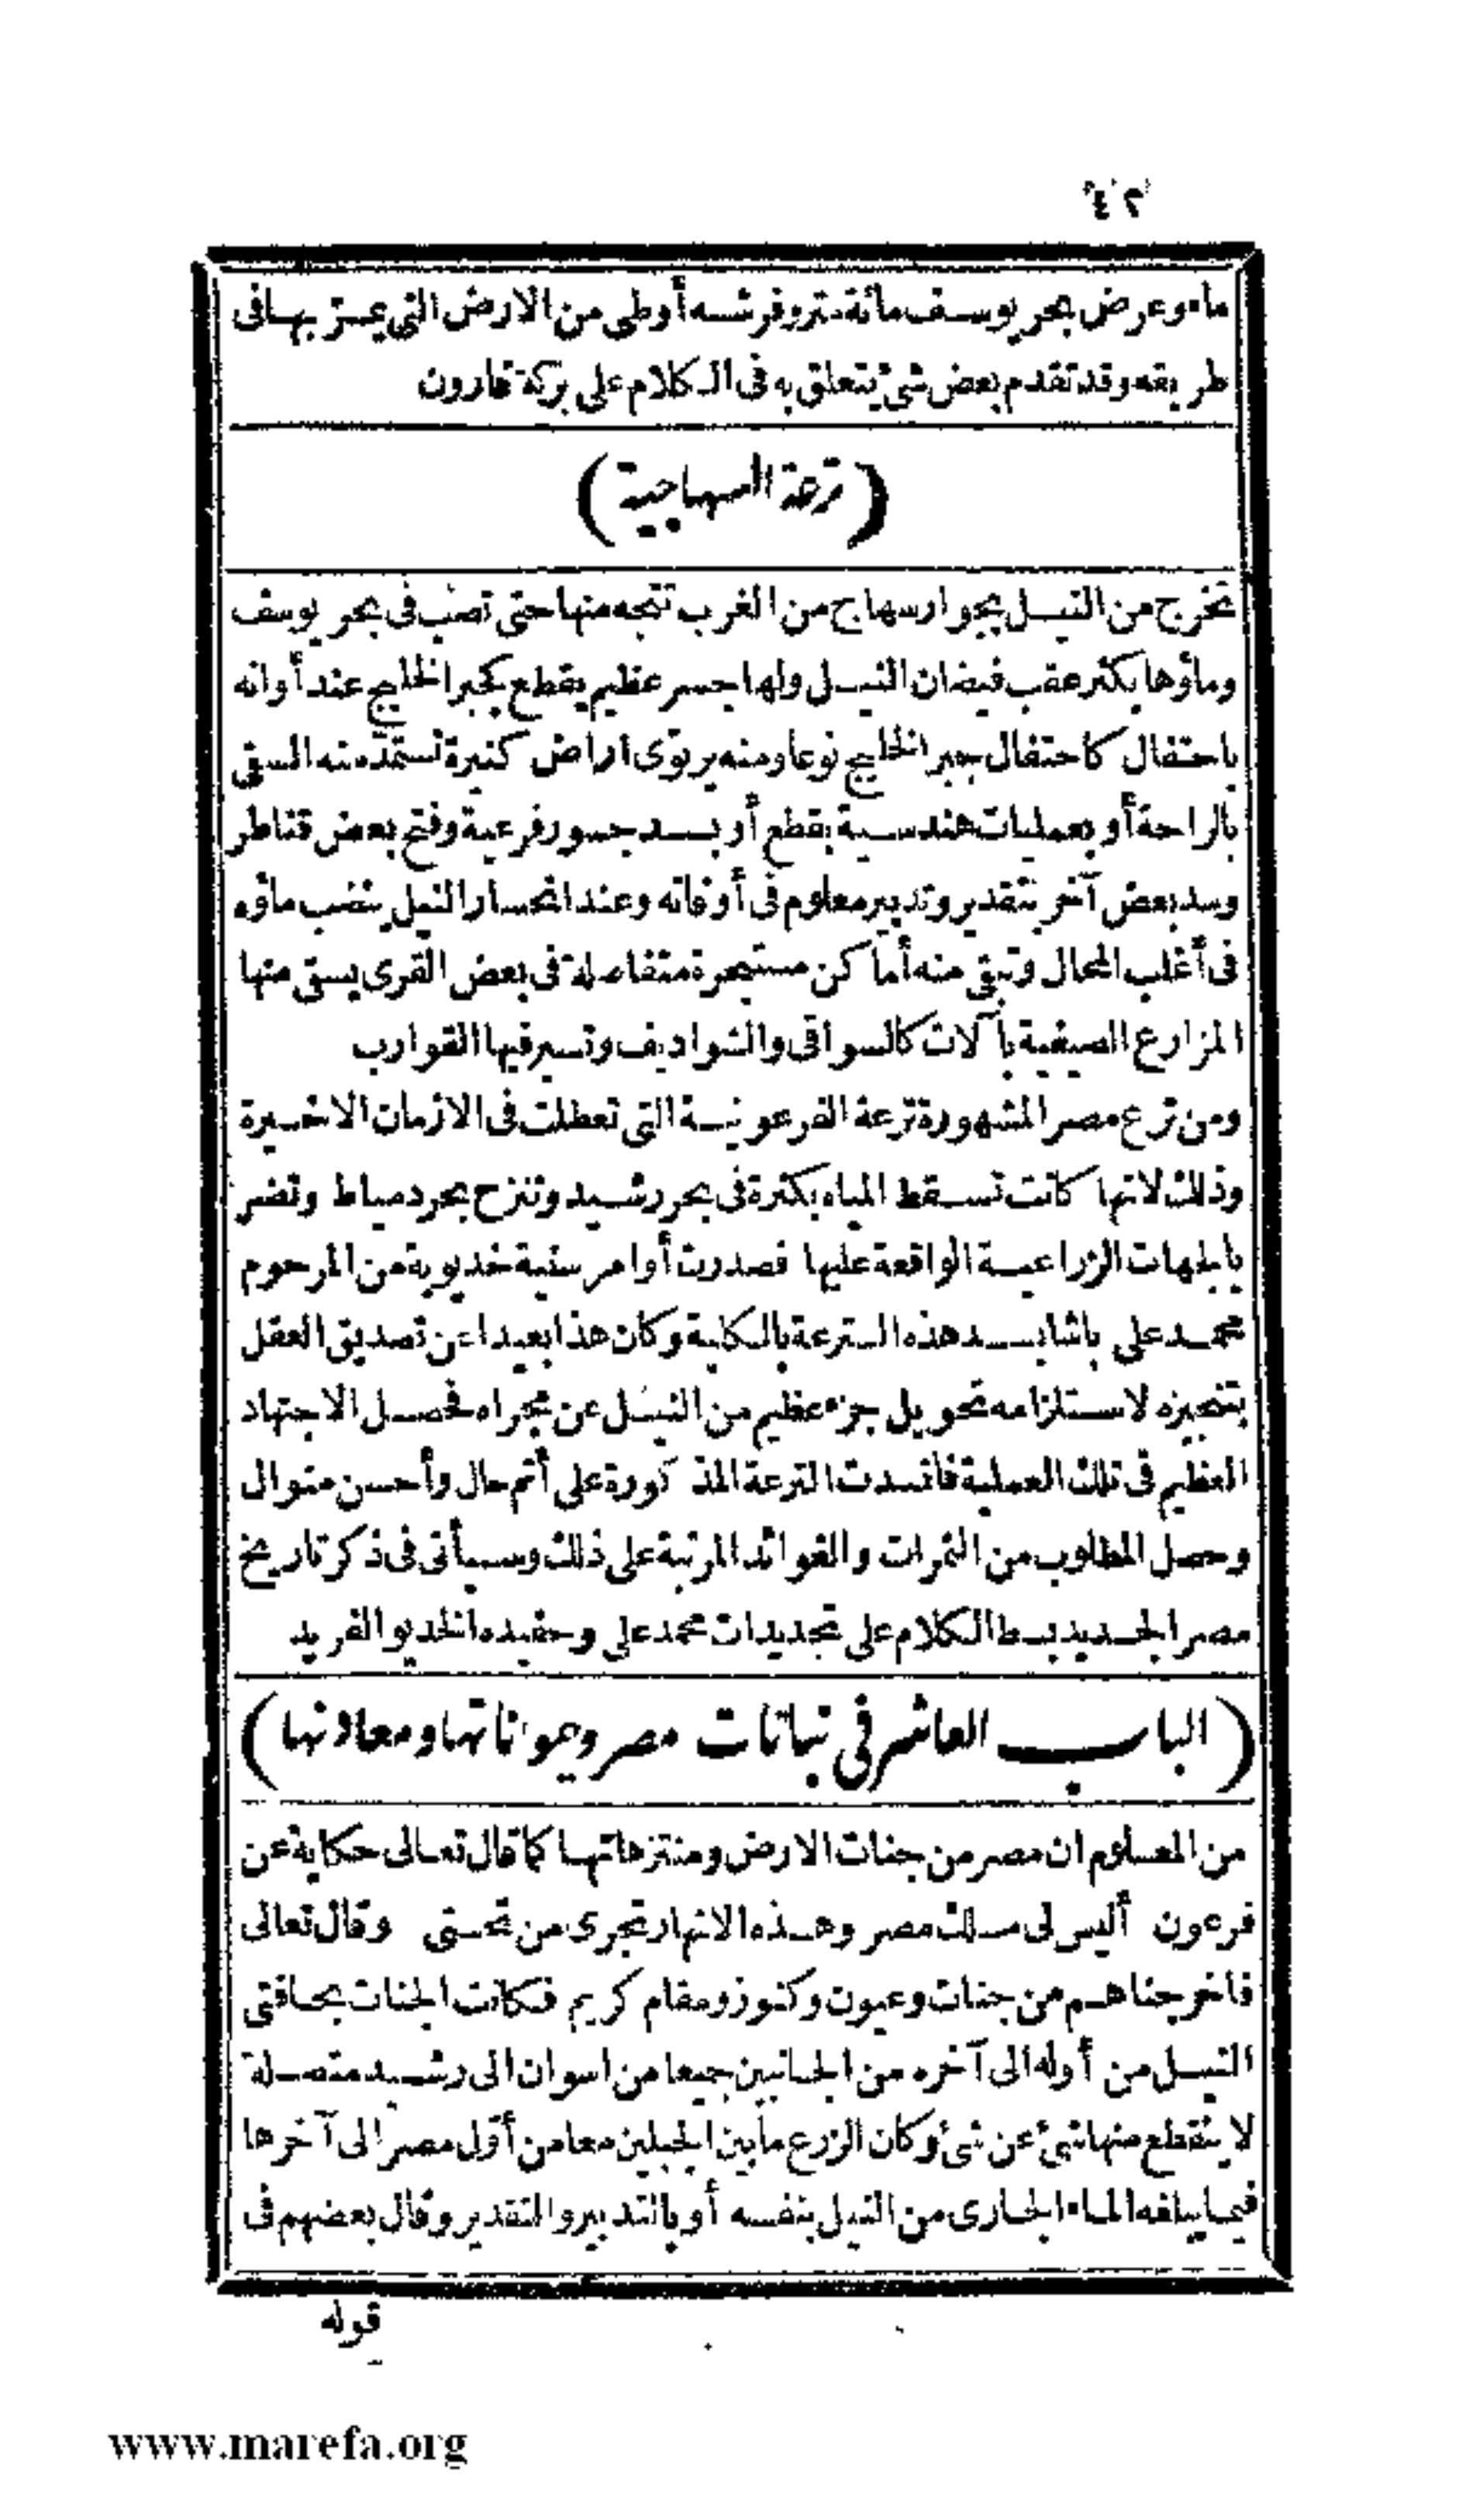 ٢٤
ماء وعرض بحر يوسف مائة متر وفرشه أوطى من الارض التي يمر بها فى
طريقه وقد تقدم بعض شئ يتعلق به فى الكلام على بركة قارون
(ترعة السهاجية)
تخرج من النيل بجوار سهاج من الغرب تتجه منها حتى تصب فى بحر يوسف
وماؤها يكثر عقب فيضان النيل ولها جسر عظيم يقطع كجبر الخليج عند أوانه
باحتفال كاحتفال جبر الخليج نوعا ومنه يرتوى اراض كثيرة تستمد منه السقى
بالراحة أو بعمليات هندسية بقطع أو بسد جسور فرعية وفتح بعض قناطر
وسد بعض آخر بتقدير وتدبير معلوم فى أوقاته وعند انحسار النيل ينضب ماؤه
فى أغلب المحال وتبقى منه أماكن مستبحرة متفاصلة فى بعض القرى يسقى منها
المزارع الصيفية بآلات كالسواقى والشواديف وتسير فيها القوارب
ومن ترع مصر المشهورة ترعة الفرعونية التى تعطلت فى الازمان الاخيرة
وذلك لانها كانت تسقط المياه بكثرة فى بحر رشيد وتنزح بحر دمياط وتضر
بالجهات الزراعية الواقعة عليها فصدرت أوامر سنية خديوية من المرحوم
محمد على باشا بسد هذه الترعة بالكلية وكان هذا بعيدا عن تصديق العقل
بتنجيزه لاستلزامه تحويل جزء عظيم من النيل عن مجراه فحصل الاجتهاد
العظيم فى تلك العملية فانسدت الترعة المذكورة على أتم حال وأحسن منوال
وحصل المطلوب من الثمرات والفوائد المرتبة على ذلك وسيأتى فى ذكر تاريخ
مصر الجديد بسط الكلام على تجديدات محمد على وحفيده الخديو الفريد
(الباب العاشر فى نباتات مصر وحيوناتها ومعادنها)
من المعلوم ان مصر من جنات الارض ومنتزهاتها كما قال تعالى حكاية عن
فرعون أليس لى ملك مصر وهذه الانهار تجرى من تحتى وقال تعالى
فاخرجناهم من جنات وعيون وكنوز ومقام كريم فكانت الجنات بحافتى
النيل من أوله الى آخره من الجانبين جميعا من اسوان الى رشيد متصلة
لا ينقطع منها شئ عن شئ وكان الزرع ما بين الجبلين معا من أوّل مصر الى آخرها
فيما يبلغه الماء الجارى من النيل بنفسه أو بالتدبير والتقدير وقال بعضهم فى
قوله
www.marefa.org